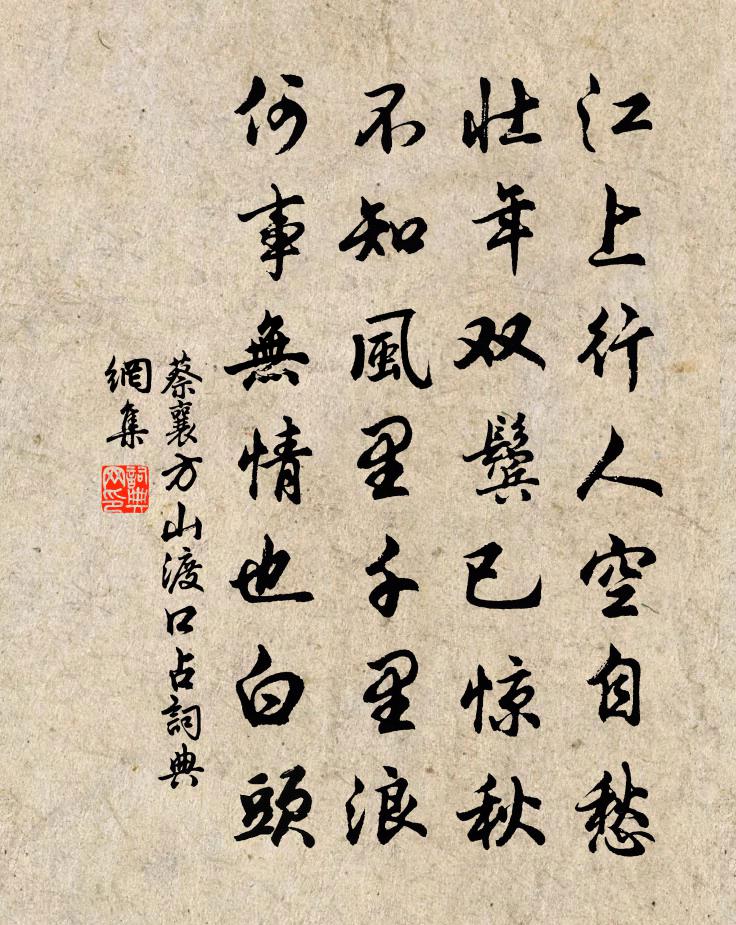 江上行人空自愁
壮年双鬓已惊秋
不知風里千里浪
何事無情也白頭
蔡襄方山渡口占詞典
網集
詞典网印